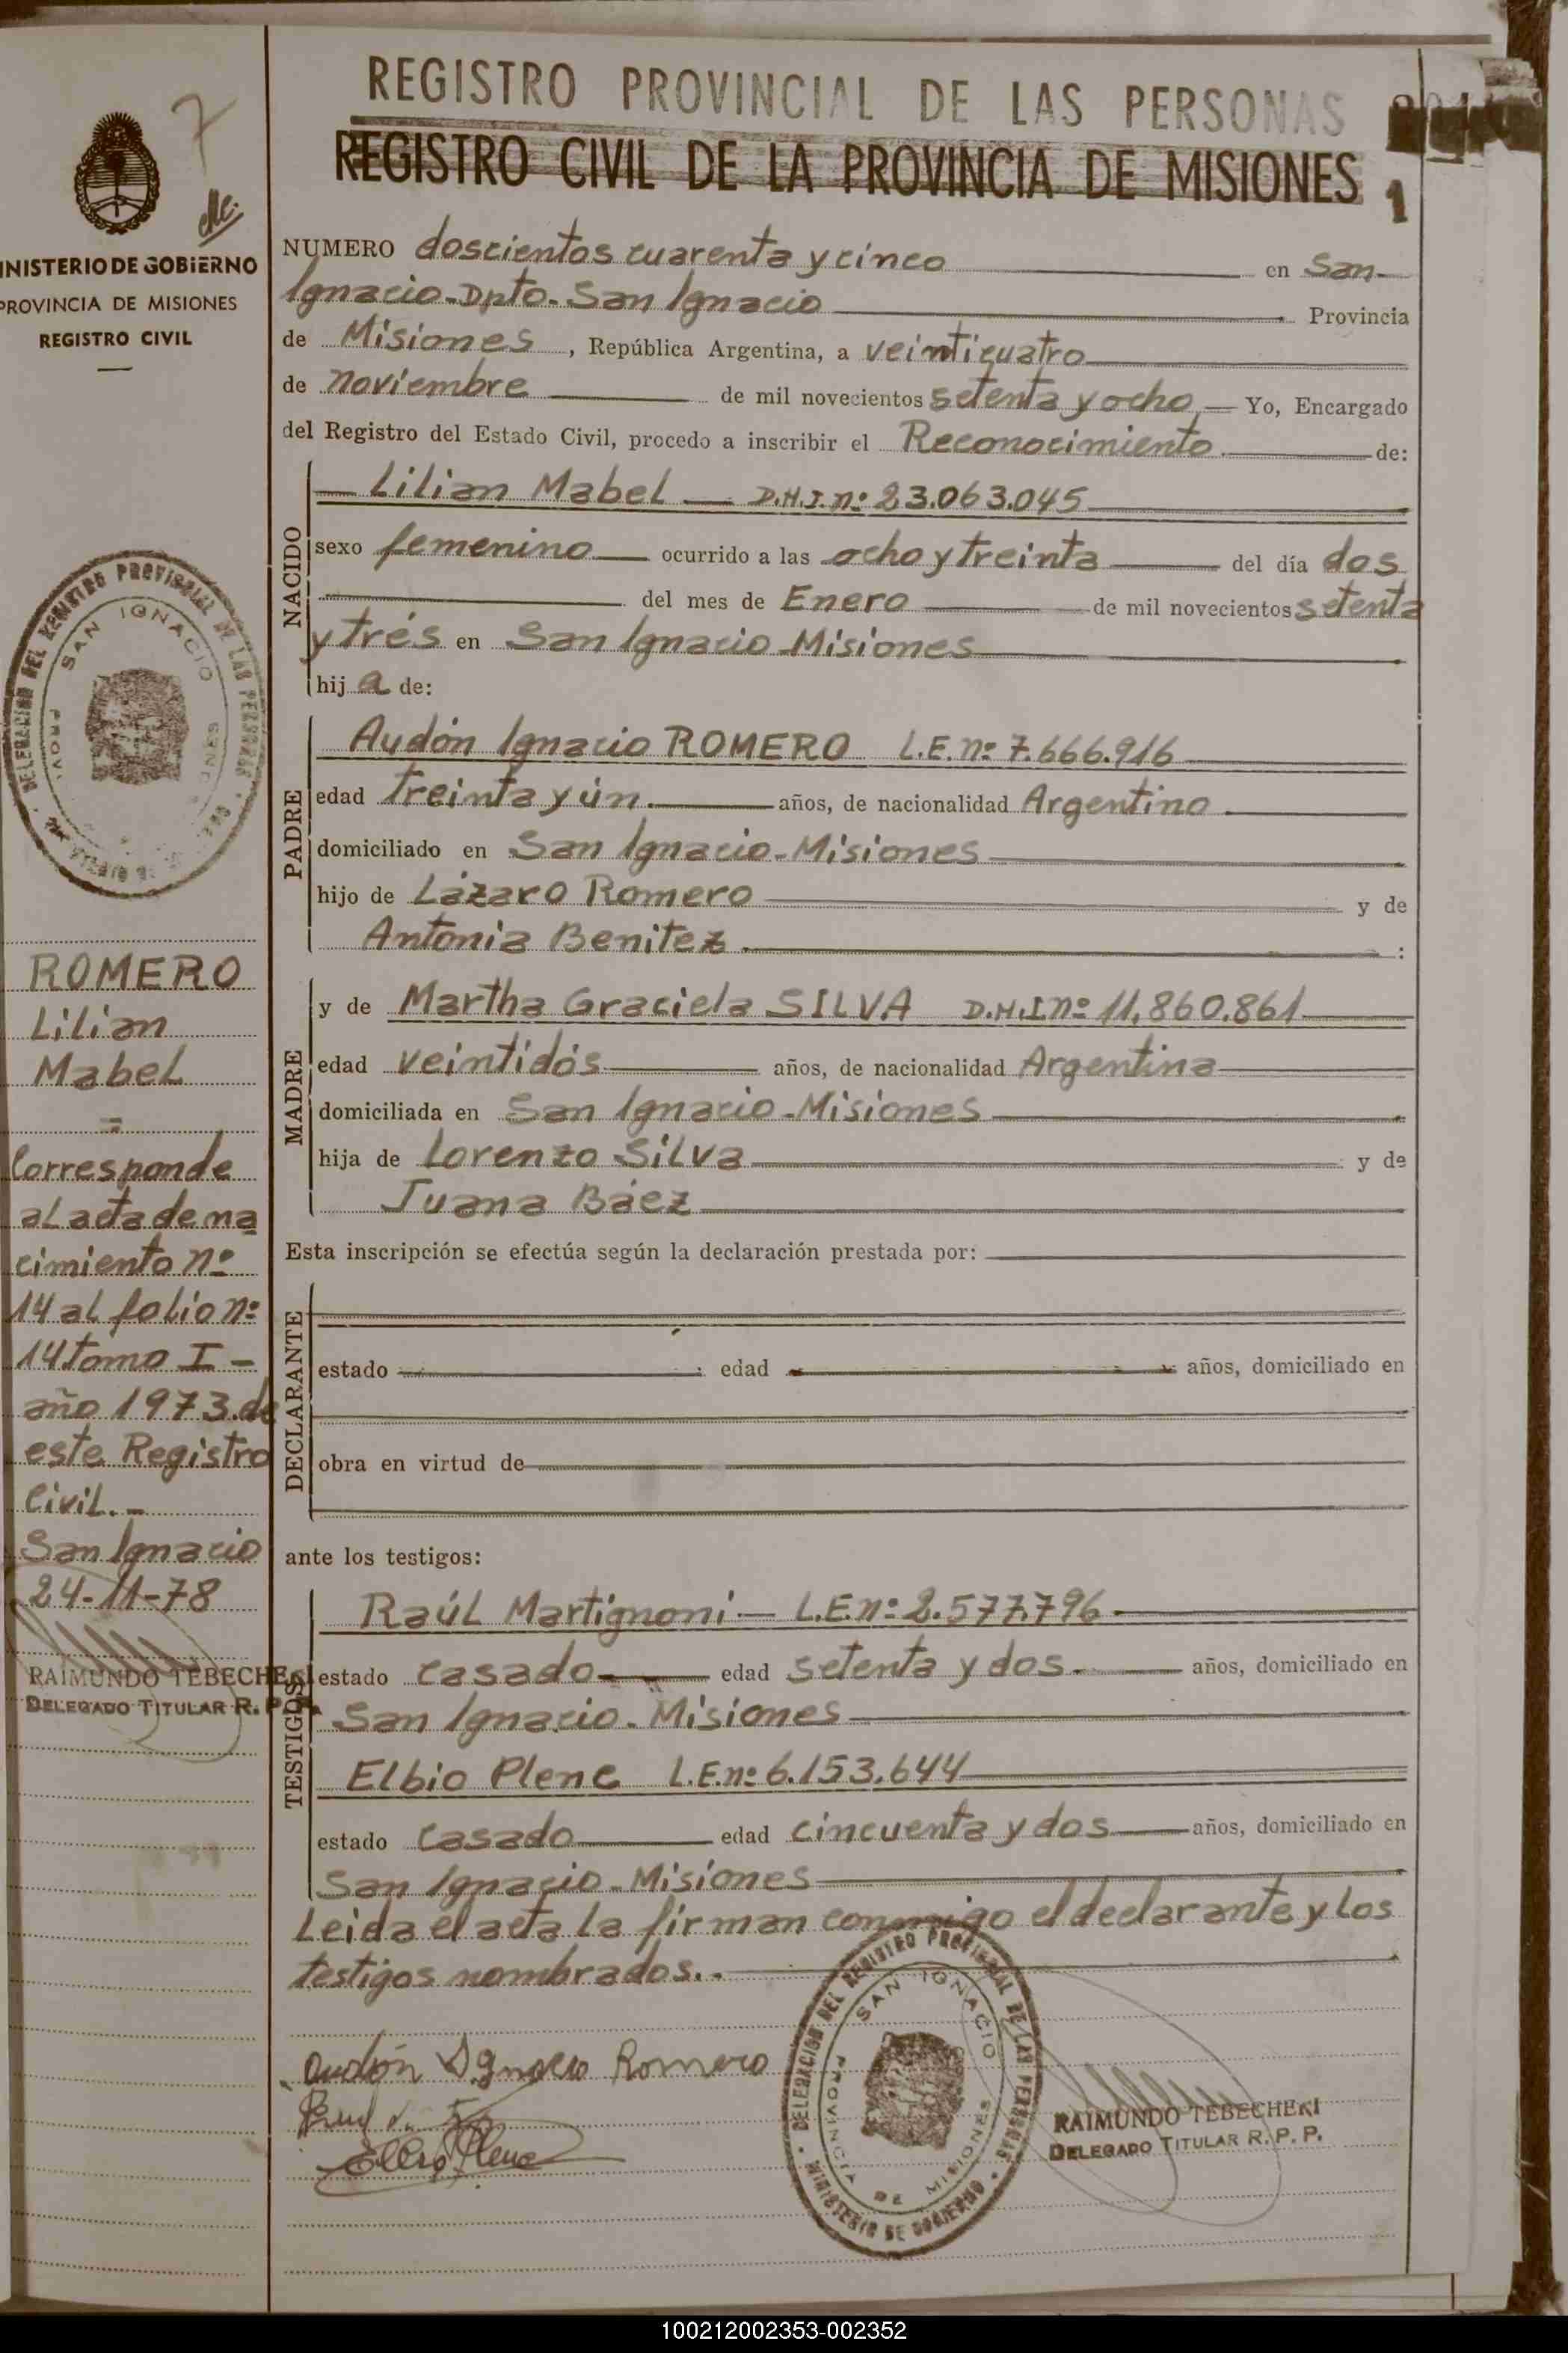 REGISTRO PROVINCIAL DE LAS PERSONAS
REGISTRO CIVIL DE LA PROVINCIA DE MISIONES
1
7
MINISTERIO DE GOBIERNO
PROVINCIA DE MISIONES
REGISTRO CIVIL
NUMERO doscientos cuarenta y cinco en San-
Ignacio-Dpto-San Ignacio Provincia
de Misiones, República Argentina, a veinticuatro
de noviembre de mil novecientos setenta y ocho, Yo, Encargado
del Registro del Estado Civil, procedo a inscribir el Reconocimiento de:
NACIDO
Lilian Mabel — D.N.I. nº 23.063.045
sexo femenino ocurrido a las ocho y treinta del día dos
del mes de Enero de mil novecientos setenta
y trés en San Ignacio-Misiones
hija de:
PADRE
Audón Ignacio ROMERO L.E. nº 7.666.916
edad treinta y ún. años, de nacionalidad Argentino
domiciliado en San Ignacio-Misiones
hijo de Lázaro Romero y de
Antonia Benitez :
MADRE
y de Martha Graciela SILVA D.N.I nº 11.860.861
edad veintidós años, de nacionalidad Argentina
domiciliada en San Ignacio-Misiones
hija de Lorenzo Silva y de
Juana Báez
Esta inscripción se efectúa según la declaración prestada por:
DECLARANTE
estado edad años, domiciliado en
obra en virtud de
ante los testigos:
TESTIGOS
Raúl Martignoni — L.E. nº 2.577.796
estado casado edad setenta y dos. años, domiciliado en
San Ignacio-Misiones
Elbio Plene L.E. nº 6.153.644
estado casado edad cincuenta y dos años, domiciliado en
San Ignacio-Misiones
Leida el acta la firman conmigo el declarante y los
testigos nombrados..
Audón Ignacio Romero
Elbio Plene
DELEGACION DEL REGISTRO PROVINCIAL DE LAS PERSONAS
MINISTERIO DE GOBIERNO
SAN IGNACIO
PROVINCIA DE MISIONES
RAIMUNDO TEBECHERI
DELEGADO TITULAR R. P. P.
DELEGACION DEL REGISTRO PROVINCIAL DE LAS PERSONAS
SAN IGNACIO
ROMERO
Lilian
Mabel
=
Corresponde
al acta de na
cimiento nº
14 al folio nº
14 tomo I -
año 1973.de
este Registro
Civil.-
San Ignacio
24-11-78
RAIMUNDO TEBECHERI
DELEGADO TITULAR R. P. P.
100212002353-002352